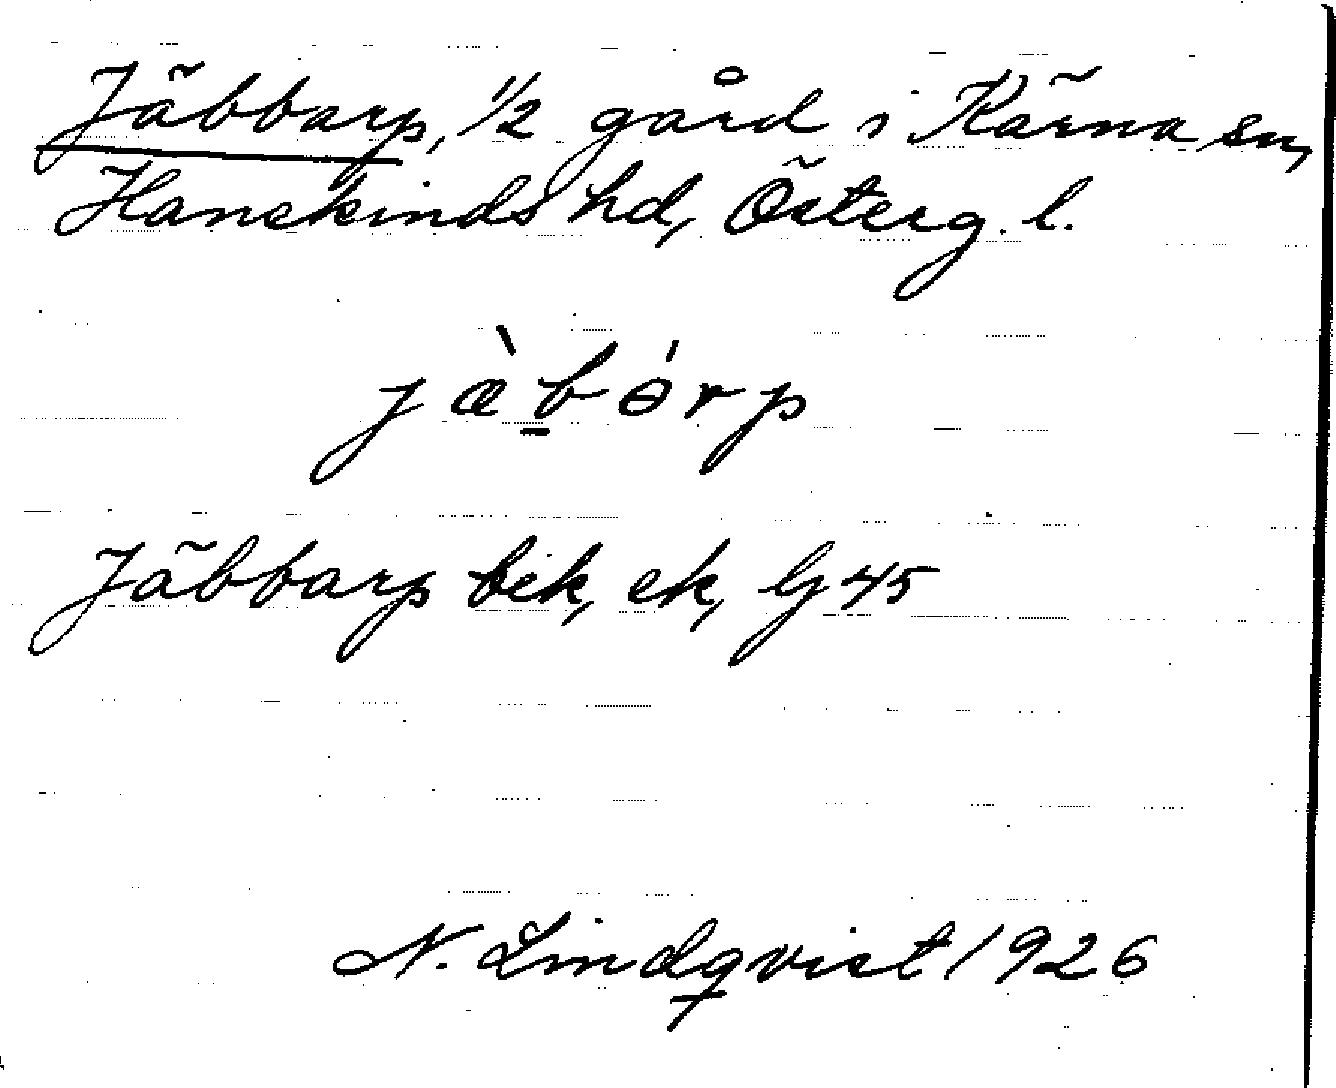 Jäbbarp, 1/2 gård i Kärna sn,
Hanekinds hd, Österg. l.
jæ̀b̲ɵ́rp
Jäbbarp bek, ek, Gj 45
N. Lindqvist 1926